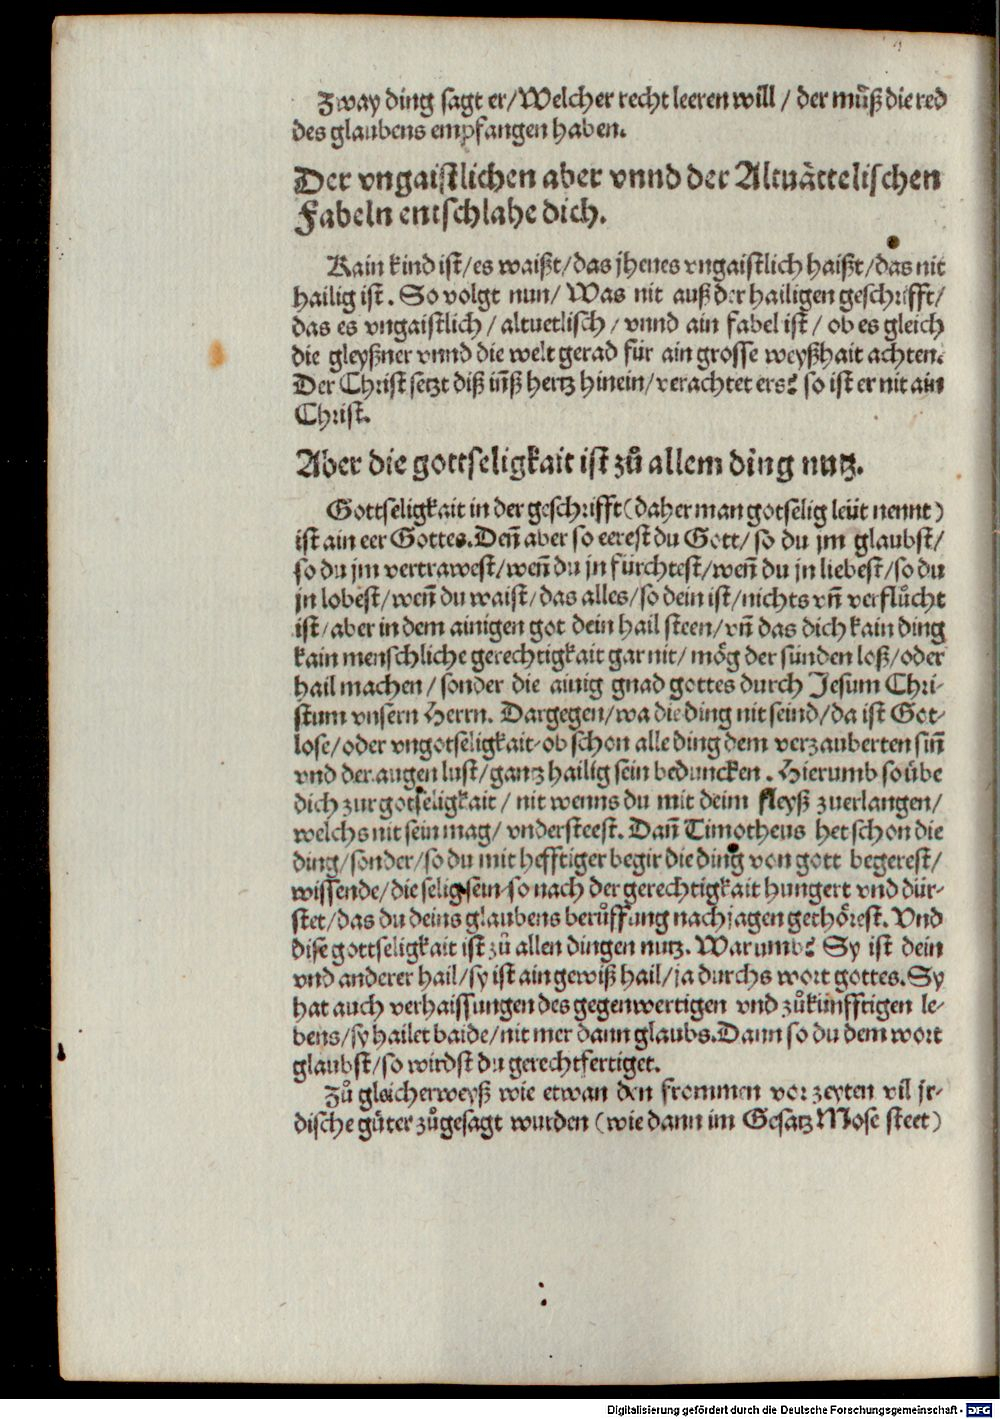 Zway ding sagt er/Welcher recht leeren will / der můß die red
des glaubens empfangen haben.
Der vngaistlichen aber vnnd der Altuättelischen
Fabeln entschlahe dich.
Kain kind ist/es waißt/das jhenes vngaistlich haißt/das nit
hailig ist. So volgt nun/ Was nit auß der hailigen geschrifft/
das es vngaistlich / altuetlisch / vnnd ain fabel ist / ob es gleich
die gleyßner vnnd die welt gerad für ain grosse weyßhait achten.
Der Christ setzt diß inß hertz hinein/verachtet ers? so ist er nit ain
Christ.
Aber die gottseligkait ist zů allem ding nutz.
Gottseligkait in der geschrifft(daher man gotselig leüt nennt)
ist ain eer Gottes.Deñ aber so eerest du Gott/ so du jm glaubst/
so du jm vertrawest/weñ du jn fürchtest/weñ du jn liebest/so du
jn lobest/weñ du waist/das alles/so dein ist/nichts vñ verflůcht
ist/aber in dem ainigen got dein hail steen/vñ das dich kain ding
kain menschliche gerechtigkait gar nit/ mög der sünden loß/oder
hail machen / sonder die ainig gnad gottes durch Jesum Chri-
stum vnsern Herrn. Dargegen/wa die ding nit seind/da ist Got-
lose/oder vngotseligkait-ob schon alle ding dem verzauberten siñ
vnd der augen lust/gantz hailig sein beduncken. Hierumb so übe
dich zur gotseligkait / nit wenns du mit deim fleyß zuerlangen/
welchs nit sein mag/ vndersteest. Dañ Timotheus het schon die
ding/sonder/so du mit hefftiger begir die ding von gott begerest/
wissende/die selig sein-so nach der gerechtigkait hungert vnd dür-
stet/das du deins glaubens berůffung nachjagen gethörest. Vnd
dise gottseligkait ist zů allen dingen nutz. Warumb? Sy ist dein
vnd anderer hail/sy ist ain gewiß hail/ja durchs wort gottes.Sy
hat auch verhaissungen des gegenwertigen vnd zůkünfftigen le-
bens/sy hailet baide/nit mer dann glaubs.Dann so du dem wort
glaubst/so wirdst du gerechtfertiget.
Zů gleicherweyß wie etwan den frommen vor zeyten vil jr-
dische güter zůgesagt wurden (wie dann im Gesatz Mose steet)
Digitalisierung gefördert durch die Deutsche Forschungsgemeinschaft - DFG